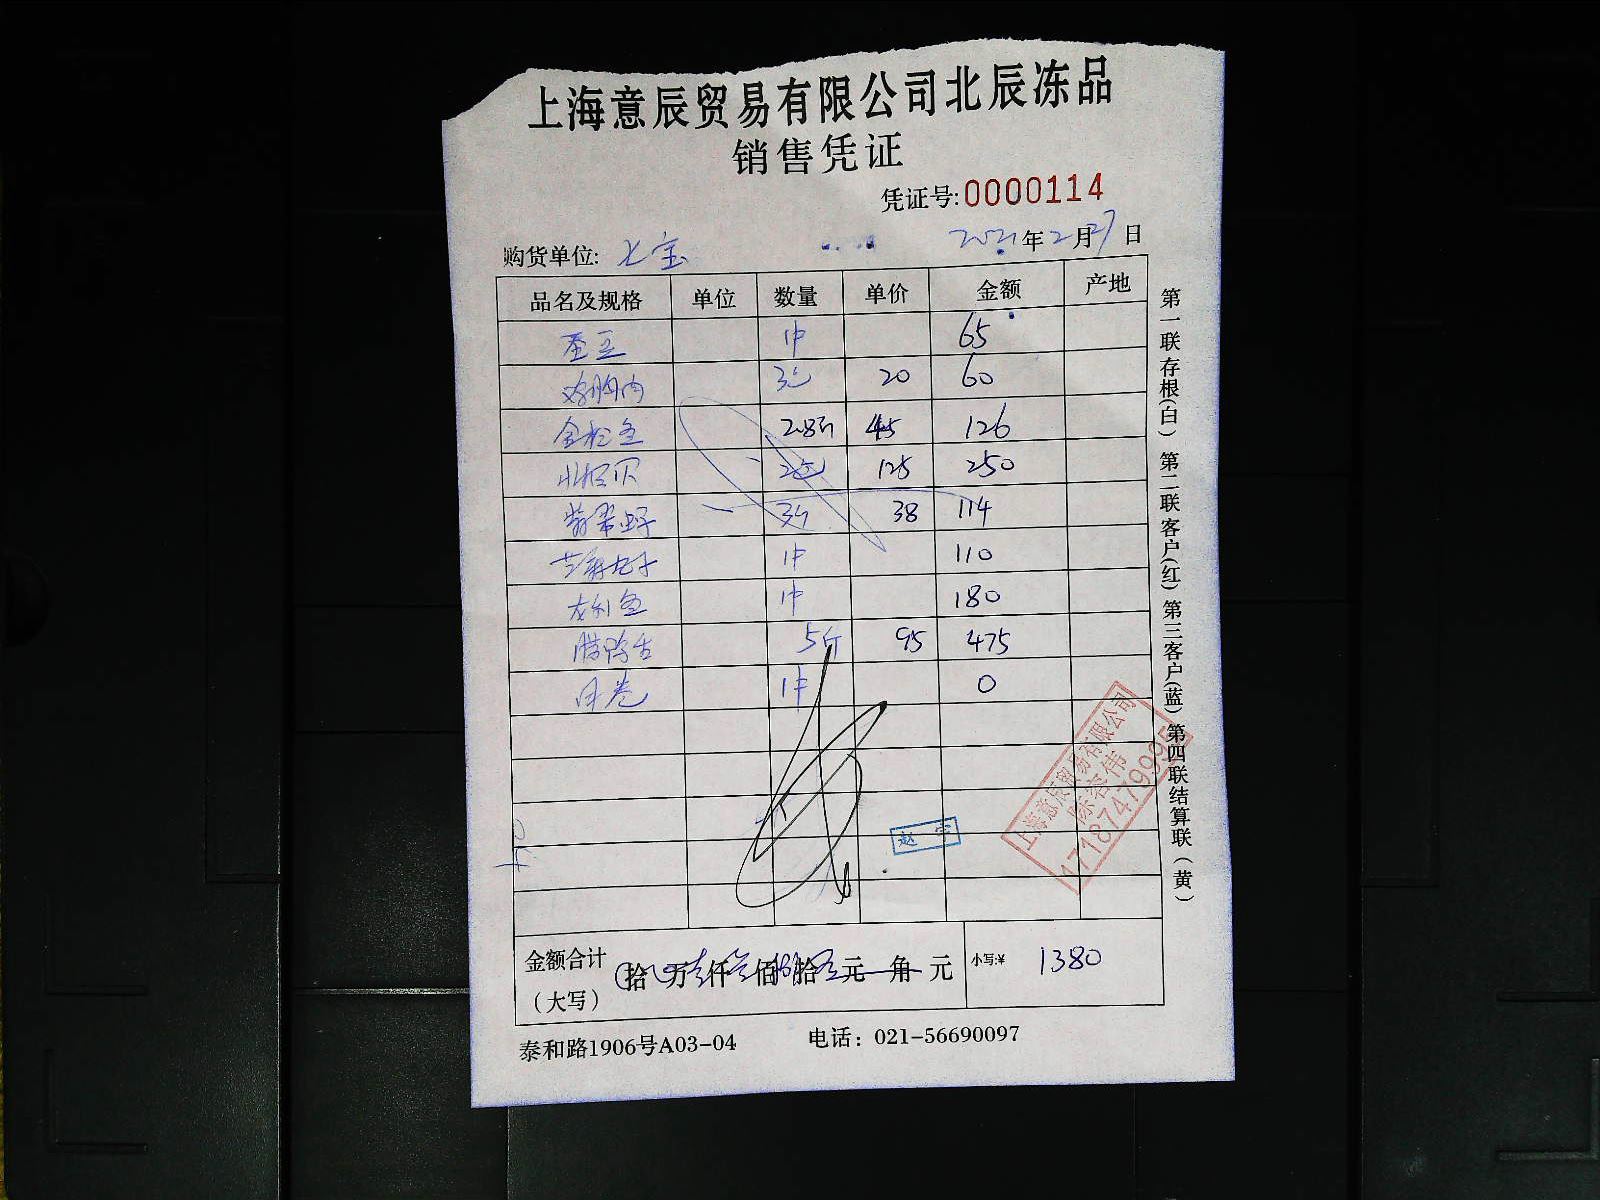 上海意辰贸易有限公司北辰冻品
销售凭证
凭证号:0000114
购货单位: 七宝 2021年2月27日
品名及规格 单位 数量 单价 金额 产地
蚕豆 1件 65
鸡胸肉 3包 20 60
金枪鱼 2.8斤 45 126
北极贝 2包 125 250
翡翠虾 3斤 38 114
芝麻丸子 1件 110
龙利鱼 1件 180
腊鸭舌 5斤 95 475
1件 0
赵宇
上海意辰贸易有限公司
17187479995
金额合计（大写） 拾万壹仟叁佰捌拾元角元 小写:¥ 1380
泰和路1906号A03-04 电话：021-56690097
第一联存根(白) 第二联客户(红) 第三客户(蓝) 第四联结算联(黄)